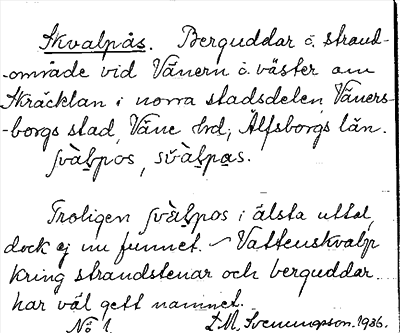 Skvalpås. Berguddar o. strand-
-område vid Vänern o. väster om
Skräcklan i norra stadsdelen, Väners-
-borgs stad, Väne hd, Älfsborgs län.
Troligen i älsta uttal,
dock ej nu funnet. — Vattenskvalp
kring strandstenar och berguddar
har väl gett namnet.
No 1. Svenningson. 1936.